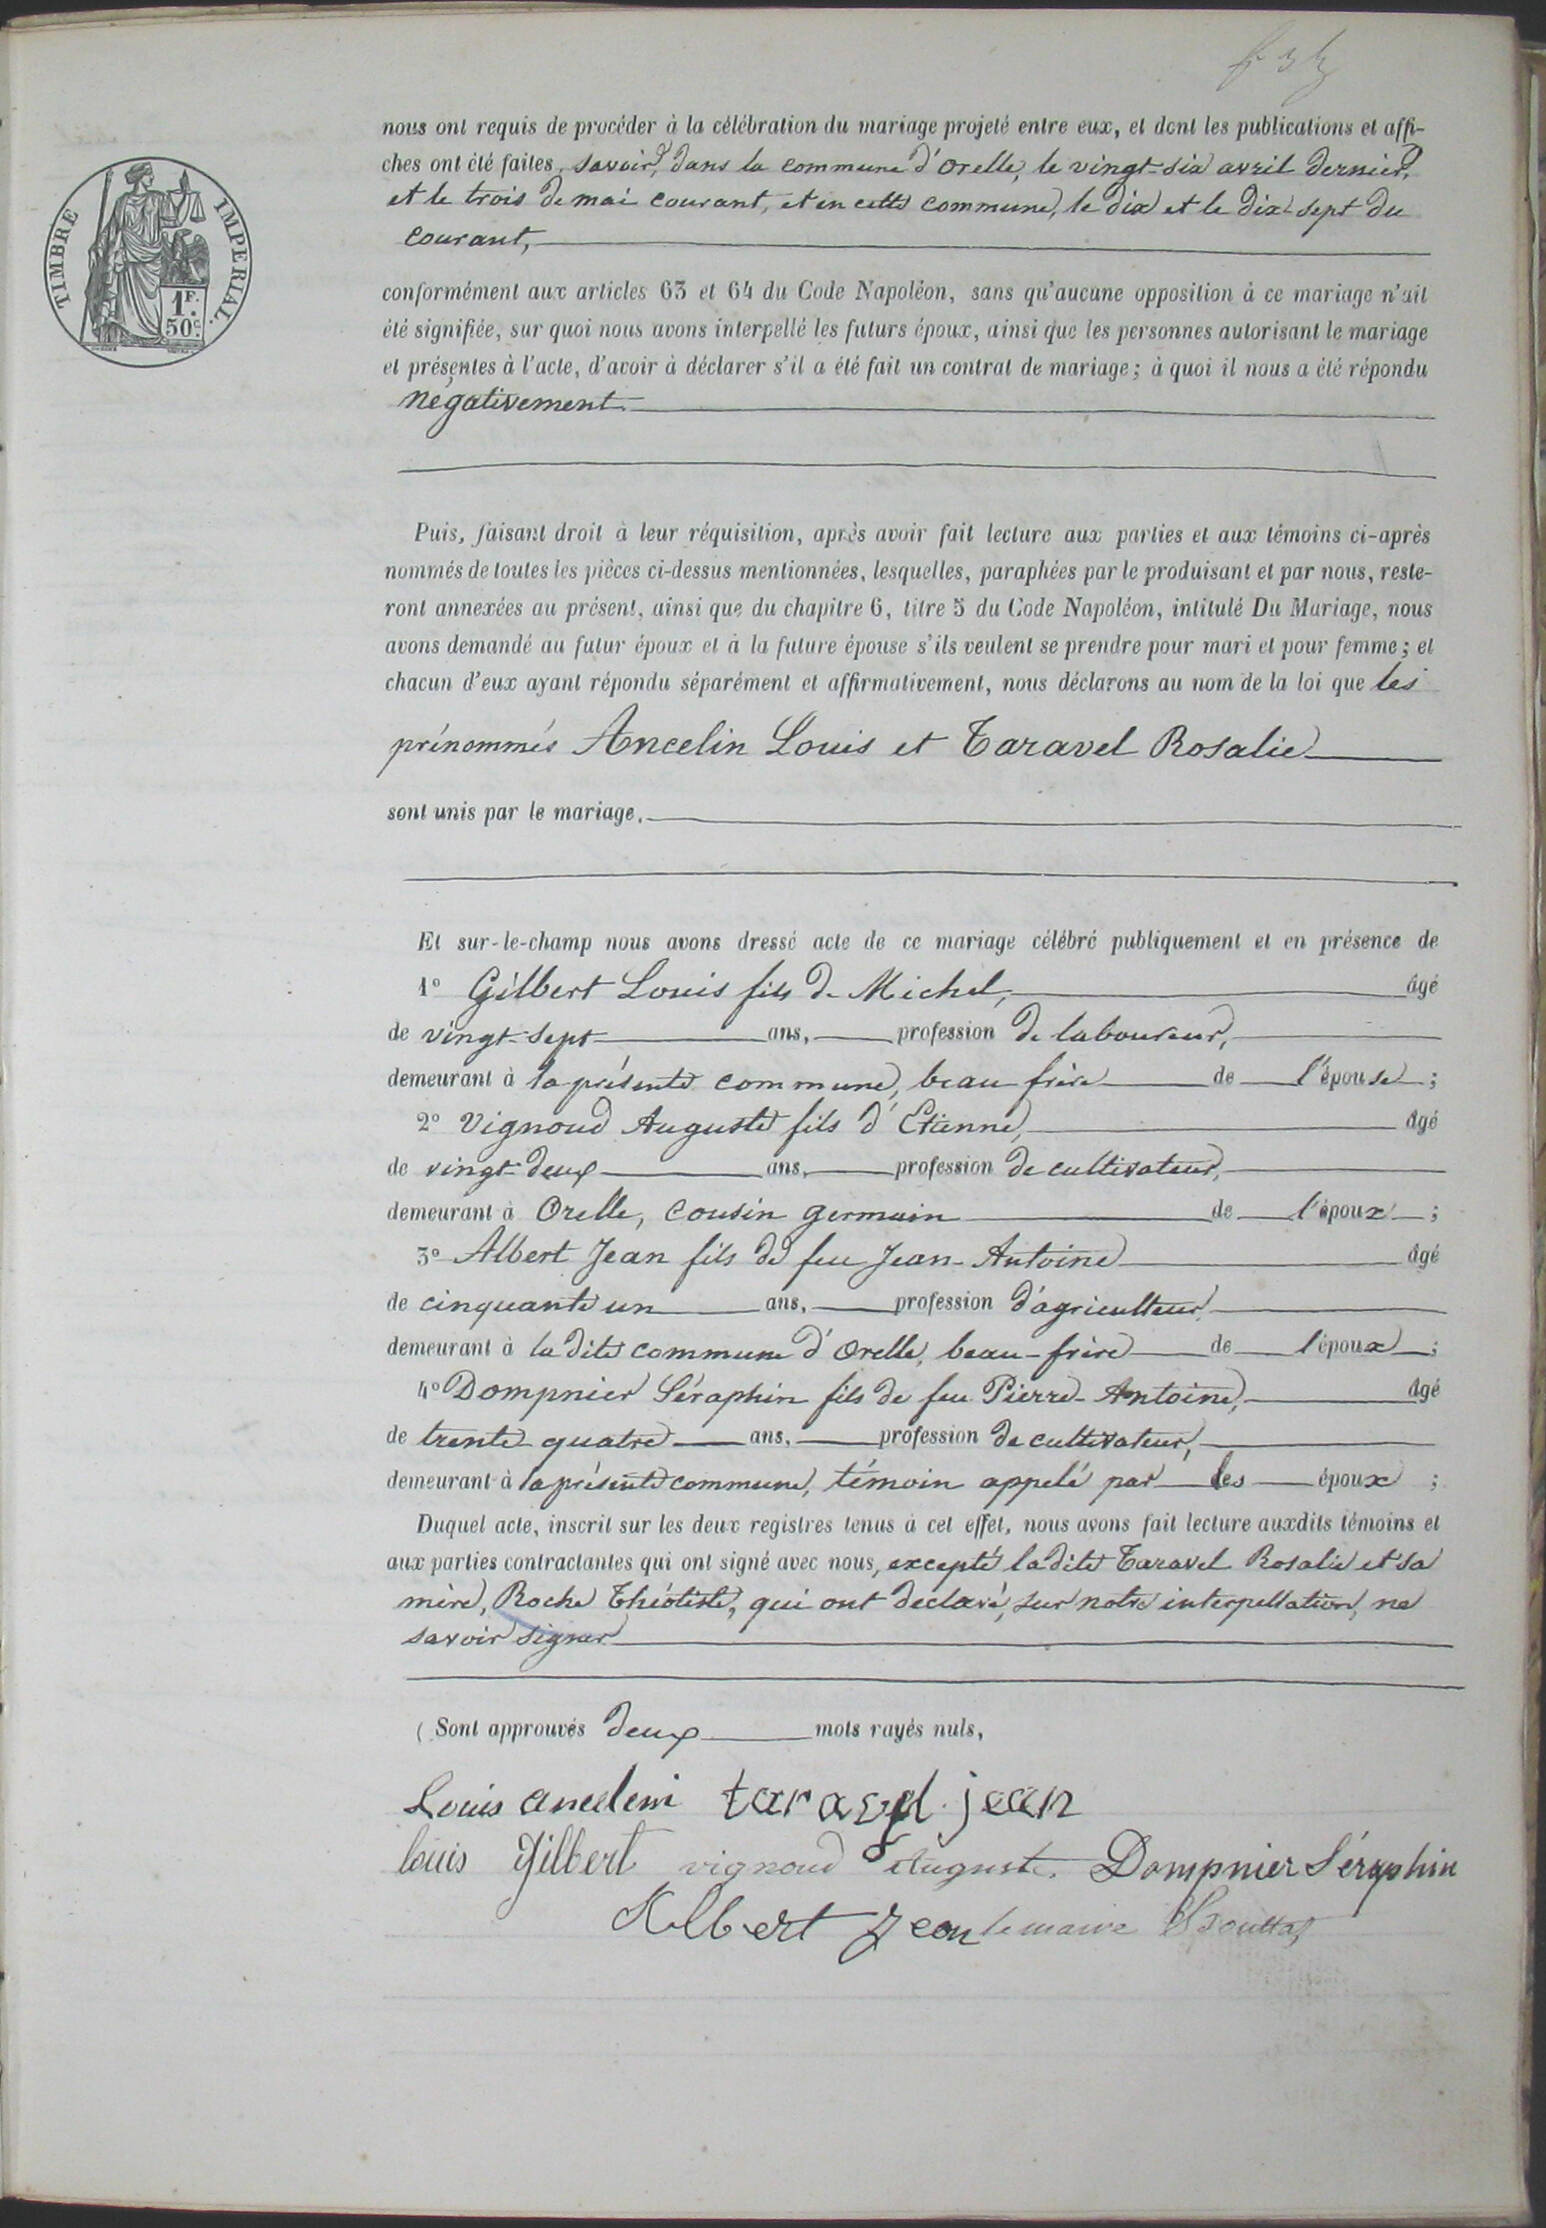 nous ont requis de procéder à la célébration du mariage projeté entre eux, et dont les publications et affi-
ches ont été faites, savoir, dans la commune d'Orelle, le vingt-six avril dernier,
et le trois de mai courant, et en cette commune, le dix et le dix-sept du
courant,
TIMBRE IMPERIAL.
1F.
50c
conformément aux articles 63 et 64 du Code Napoléon, sans qu'aucune opposition à ce mariage n'ait
été signifiée, sur quoi nous avons interpellé les futurs époux, ainsi que les personnes autorisant le mariage
et présentes à l'acte, d'avoir à déclarer s'il a été fait un contrat de mariage; à quoi il nous a été répondu
négativement.
Puis, faisant droit à leur réquisition, après avoir fait lecture aux parties et aux témoins ci-après
nommés de toutes les pièces ci-dessus mentionnées, lesquelles, paraphées par le produisant et par nous, reste-
ront annexées au présent, ainsi que du chapitre 6, titre 5 du Code Napoléon, intitulé Du Mariage, nous
avons demandé au futur époux et à la future épouse s'ils veulent se prendre pour mari et pour femme; et
chacun d'eux ayant répondu séparément et affirmativement, nous déclarons au nom de la loi que les
prénommés Ancelin Louis et Taravel Rosalie
sont unis par le mariage.
Et sur-le-champ nous avons dressé acte de ce mariage célébré publiquement et en présence de
1º Gilbert Louis fils de Michel, âgé
de vingt-sept ans, profession de laboureur,
demeurant à la présente commune, beau frère de l'épouse;
2º Vignoud Auguste fils d'Etienne, âgé
de vingt-deux ans, profession de cultivateur,
demeurant à Orelle, cousin germain de l'époux;
3º Albert Jean fils de feu Jean-Antoine âgé
de cinquante un ans, profession d'agriculteur,
demeurant à la dite commune d'Orelle, beau-frère de l'époux;
4º Dompnier Séraphin fils de feu Pierre-Antoine, âgé
de trente quatre ans, profession de cultivateur,
demeurant à la présente commune, témoin appelé par les époux;
Duquel acte, inscrit sur les deux registres tenus à cet effet, nous avons fait lecture auxdits témoins et
aux parties contractantes qui ont signé avec nous, excepté la dite Taravel Rosalie et sa
mère, Roche Théotiste, qui ont déclaré, sur notre interpellation, ne
savoir signer
(Sont approuvés deux mots rayés nuls,
Louis ancelin taravel jean
louis Gilbert vignoud Auguste. Dompnier Séraphin
Albert Jean le maire